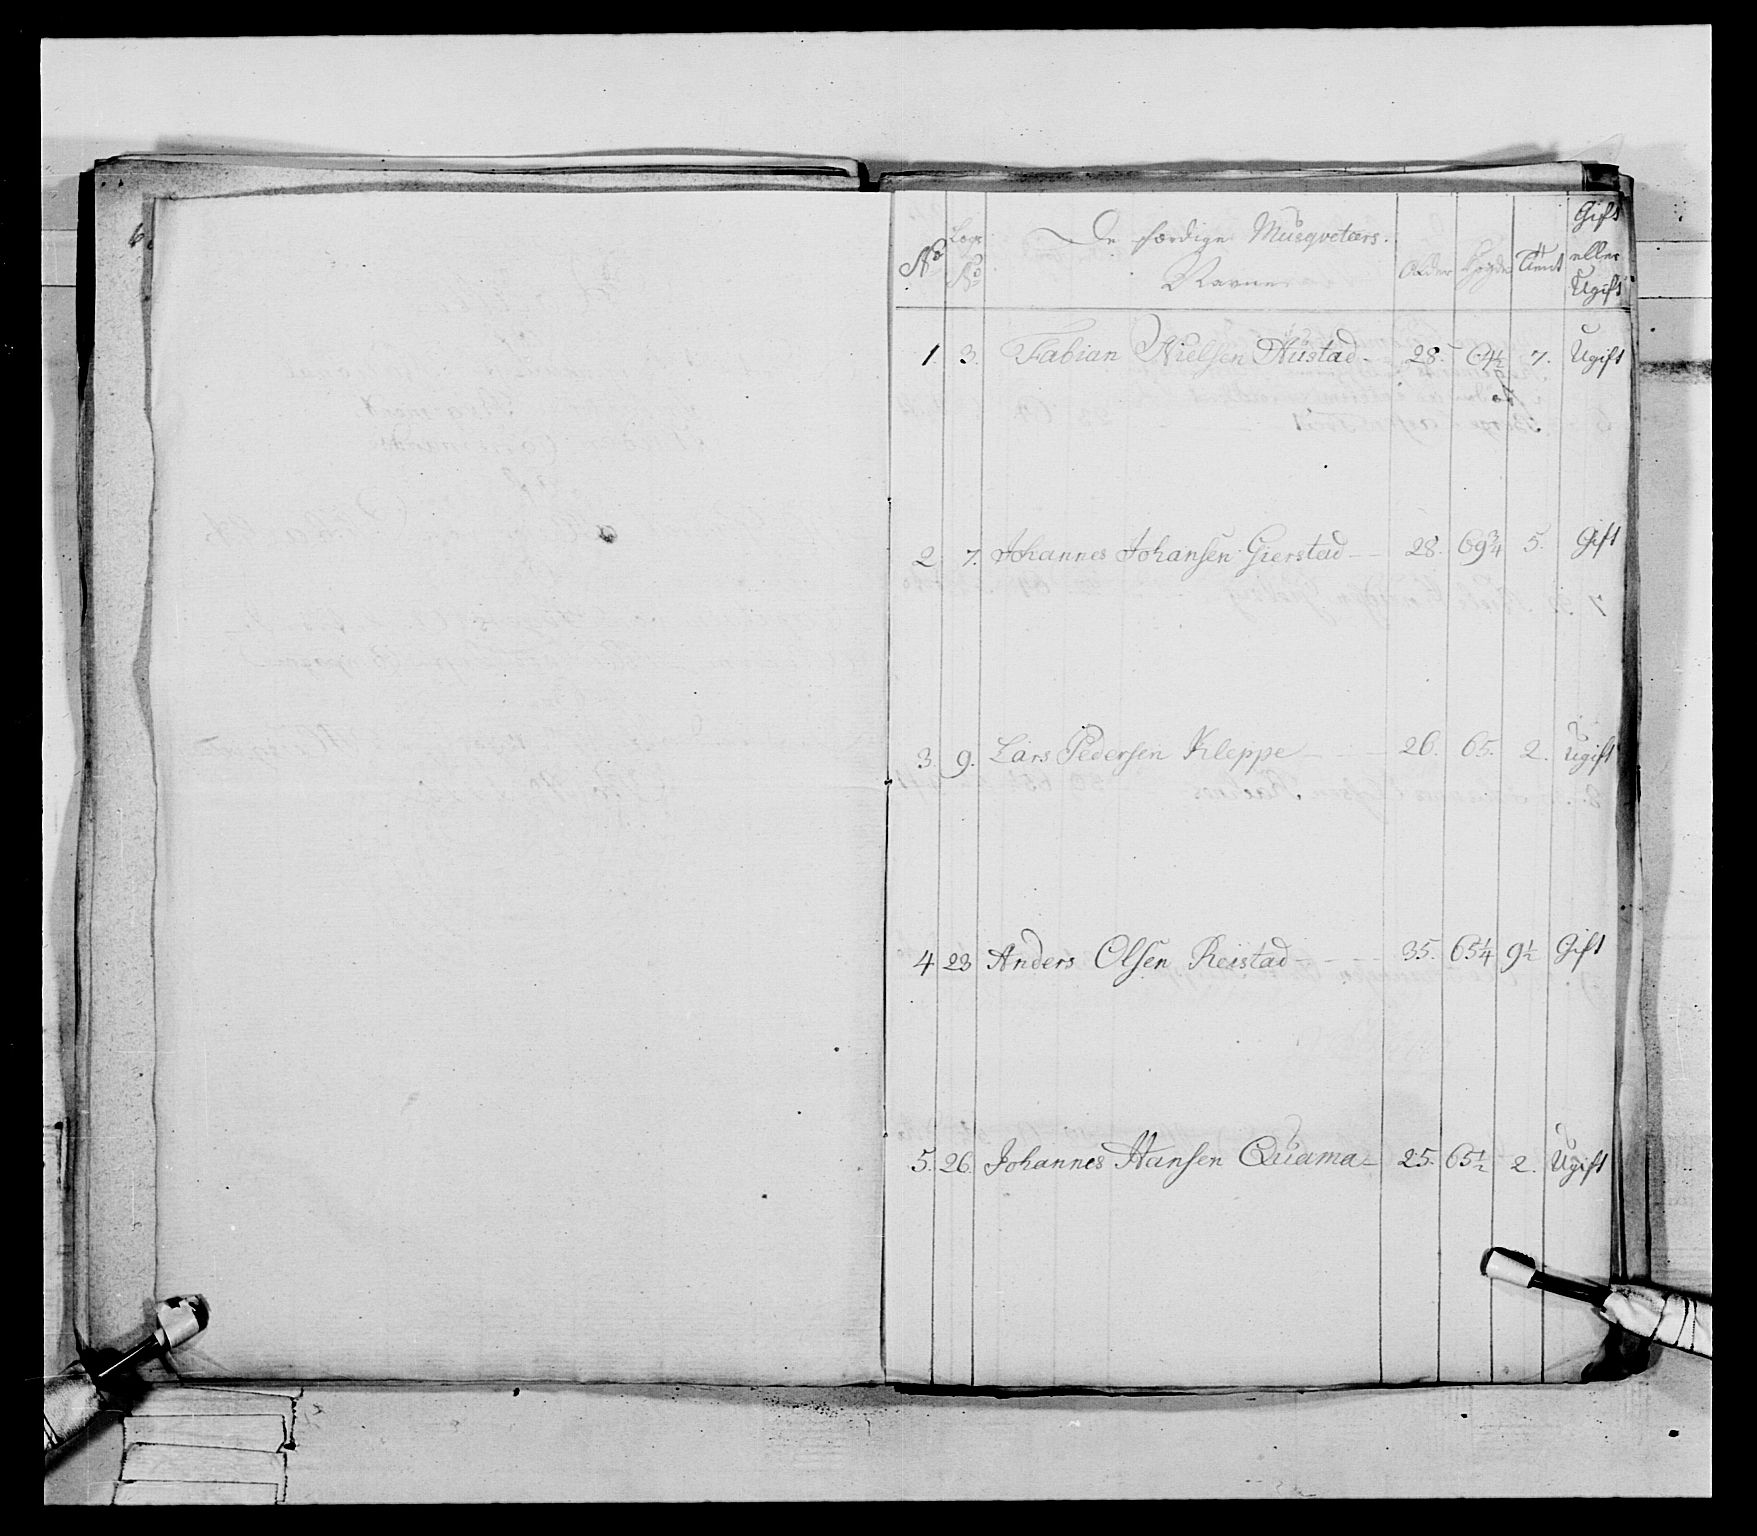 No
Lægs
No
De færdige Musqveteers
Navne
Alder
Høyde
Tient
Gift
eller
Ugift
1. 3. Fabian Nielsen Hustad - 28. 64½ 7. Ugift
2 7. Johannes Johansen Gierstad - - 28. 69¾ 5. Gift
3. 9. Lars Pedersen Kleppe - - 26. 65. 2. Ugift
4 23 Anders Olsen Reistad - - - - 35. 65¼ 9½ Gift
5. 26. Johannes Hansen Quama - 25. 65½ 2. Ugift